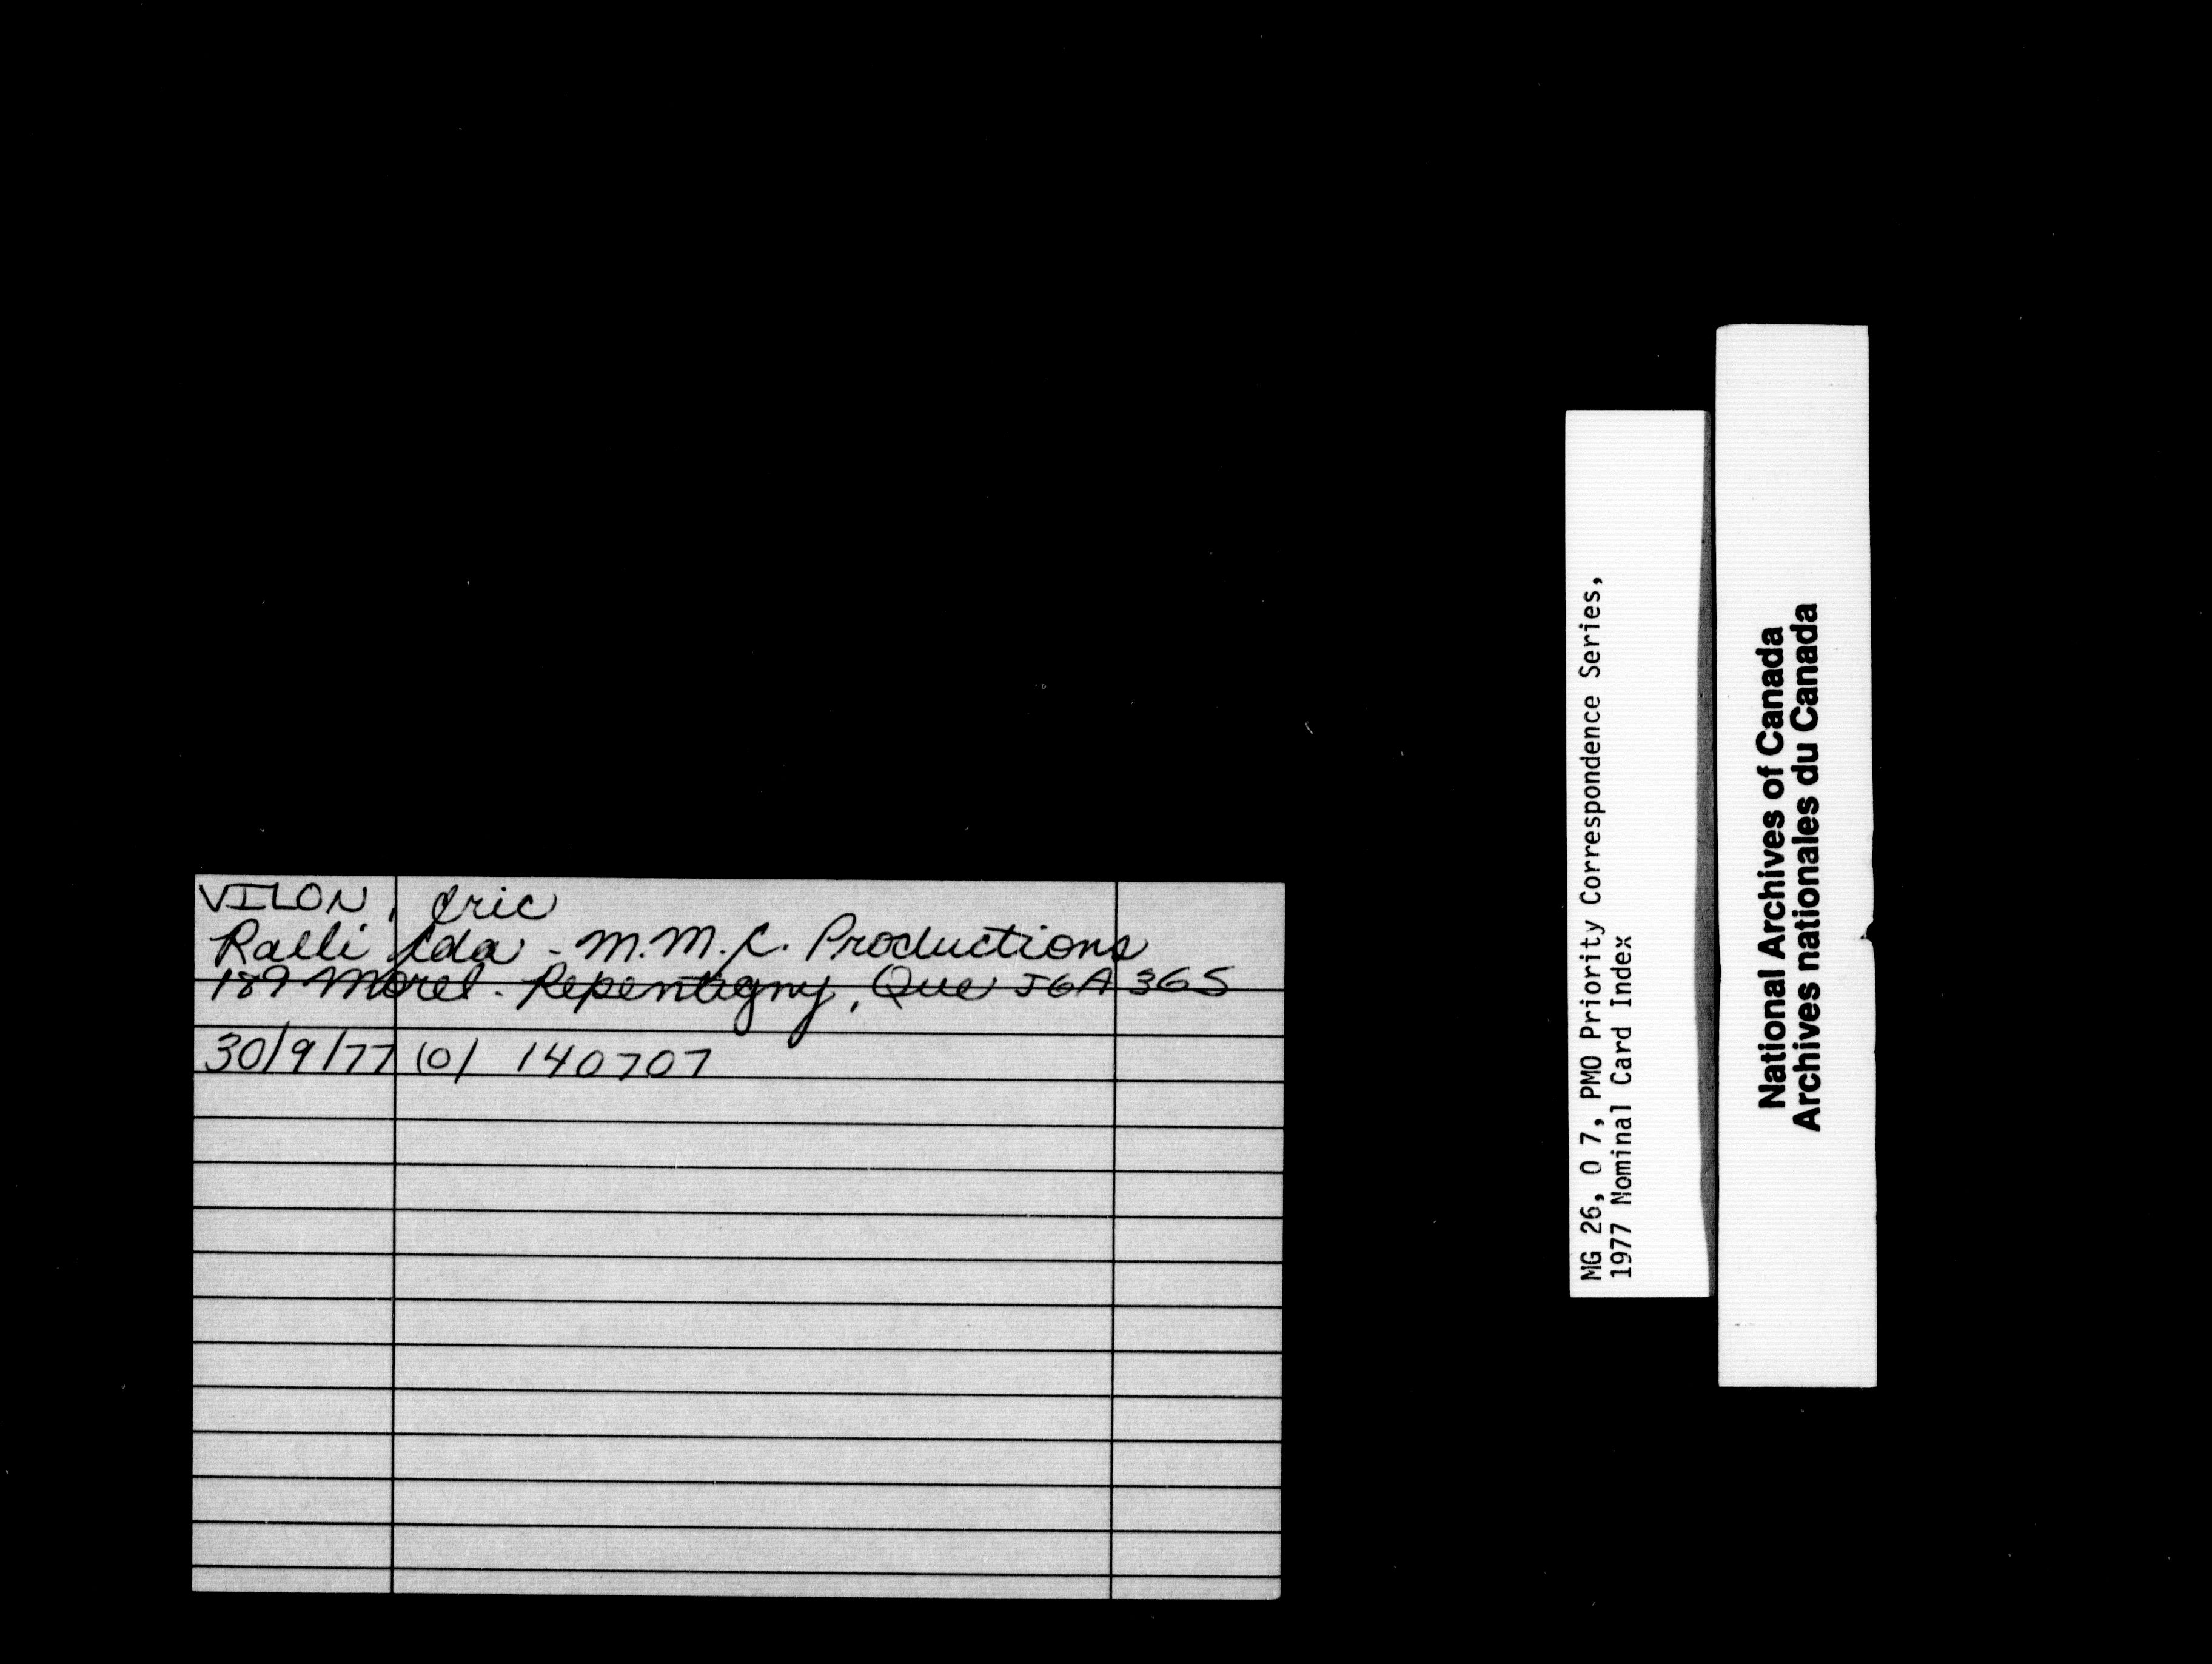 VILON, Eric
Ralli Ida - M.M.C. Productions
189 Morel - Repentigny, Que J6A 3G5
30/9/77 (0) 140707
MG 26, O 7, PMO Priority Correspondence Series,
1977 Nominal Card Index
National Archives of Canada
Archives nationales du Canada